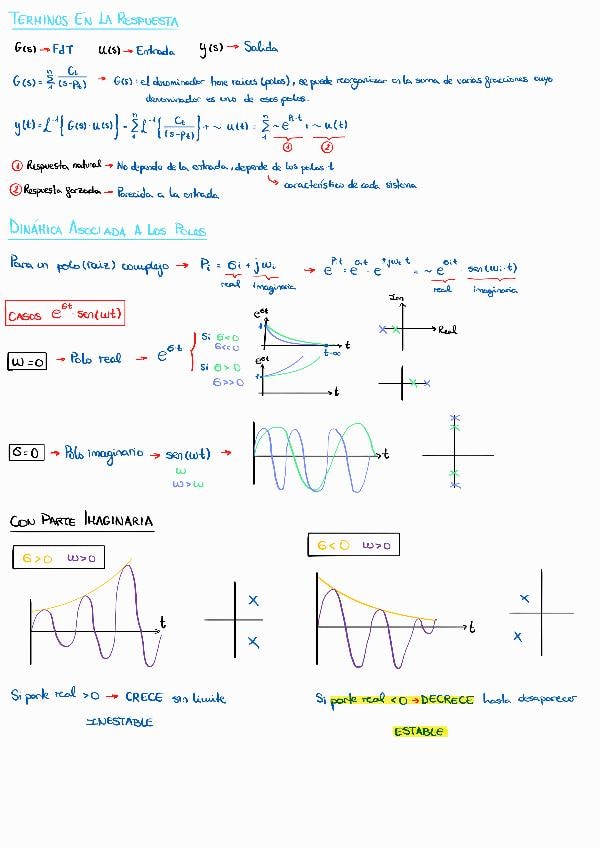 TERMINOS EN LA RESPUESTA
G(s) → FdT U(s) → Entrada Y(s) → Salida
G(s) = Σ₁ⁿ Cᵢ/(s-Pᵢ) → G(s): el denominador tiene raíces (polos), se puede reorganizar en la suma de varias fracciones cuyo
denominador es uno de esos polos.
y(t) = L⁻¹{G(s)·U(s)} = Σ₁ⁿ L⁻¹{Cᵢ/(s-Pᵢ)} + ~ u(t) = Σ₁ⁿ ~e^(Pᵢ·t) + ~ u(t)
① ②
① Respuesta natural → No depende de la entrada, depende de los polos
↳ característico de cada sistema
② Respuesta forzada → Parecida a la entrada
DINÁMICA ASOCIADA A LOS POLOS
Para un polo (raíz) complejo → Pᵢ = σᵢ + jωᵢ → e^(Pᵢt) = e^(σᵢt) · e^(+jωᵢt) = ~ e^(σᵢt) sen(ωᵢ·t)
real imaginaria real imaginaria
CASOS e^(σt)·sen(ωt)
Im
Real
ω=0 → Polo real → e^(σt)
Si σ<0
σ<<0
Si σ>0
σ>>0
e^(σt)
1
t
t→∞
e^(σt)
1
t
σ=0 → Polo imaginario → sen(ωt) →
ω
ω>ω
t
CON PARTE IMAGINARIA
σ>0 ω>0
t
σ<0 ω>0
t
Si parte real >0 → CRECE sin límite
INESTABLE
Si parte real <0 → DECRECE hasta desaparecer
ESTABLE